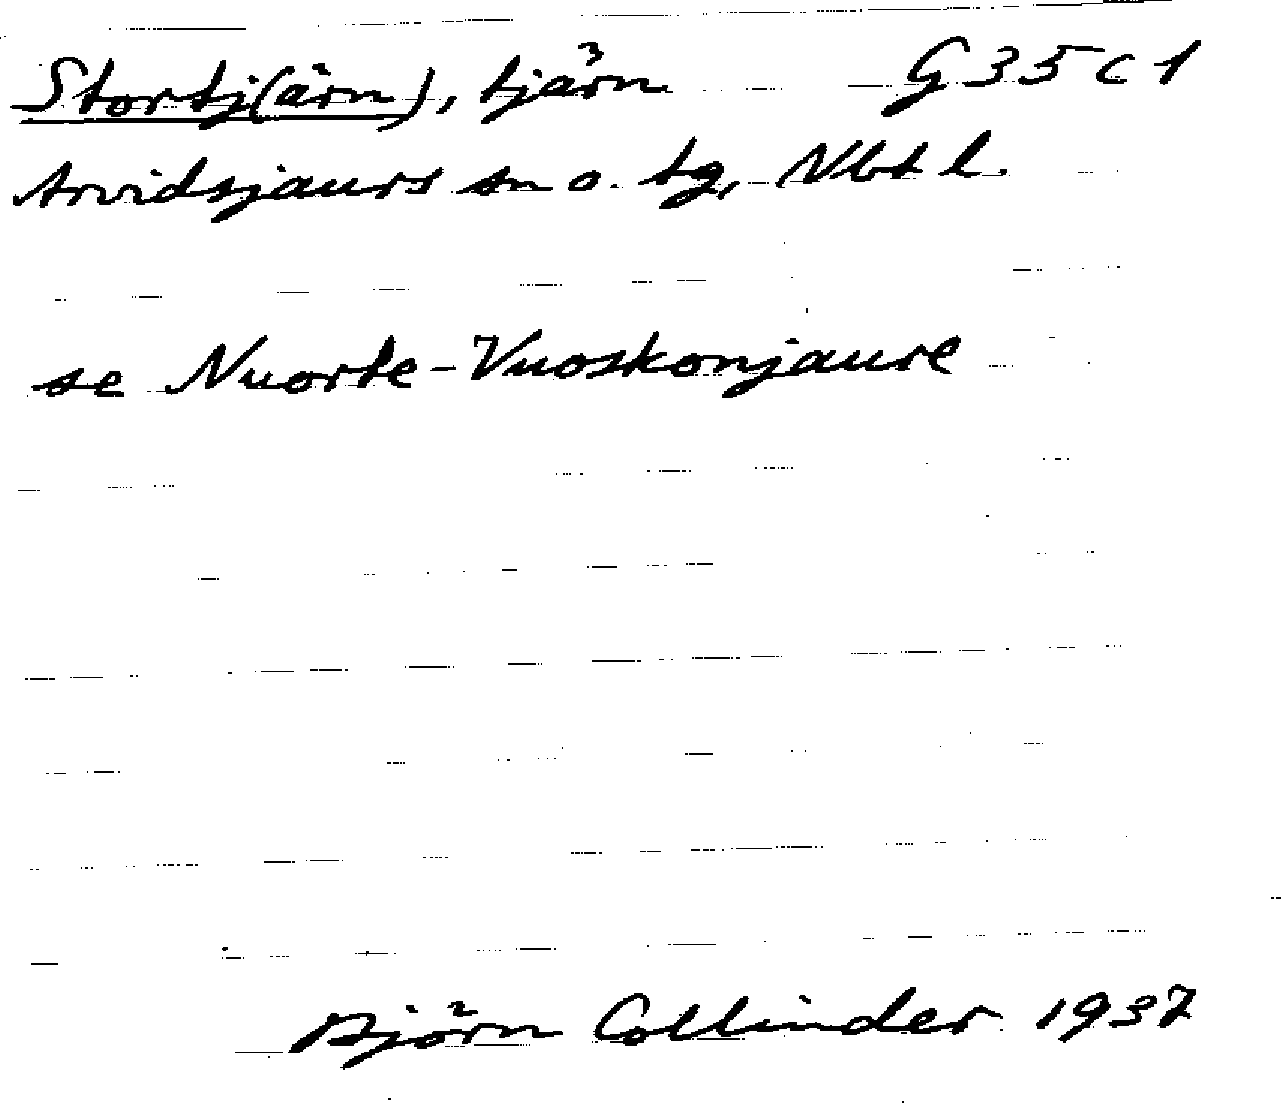 Stortj(ärn), tjärn G 35 c 1
Arvidsjaurs sn o. tg, Nbt l.
se Nuorte-Vuoskonjaure
Björn Collinder 1937